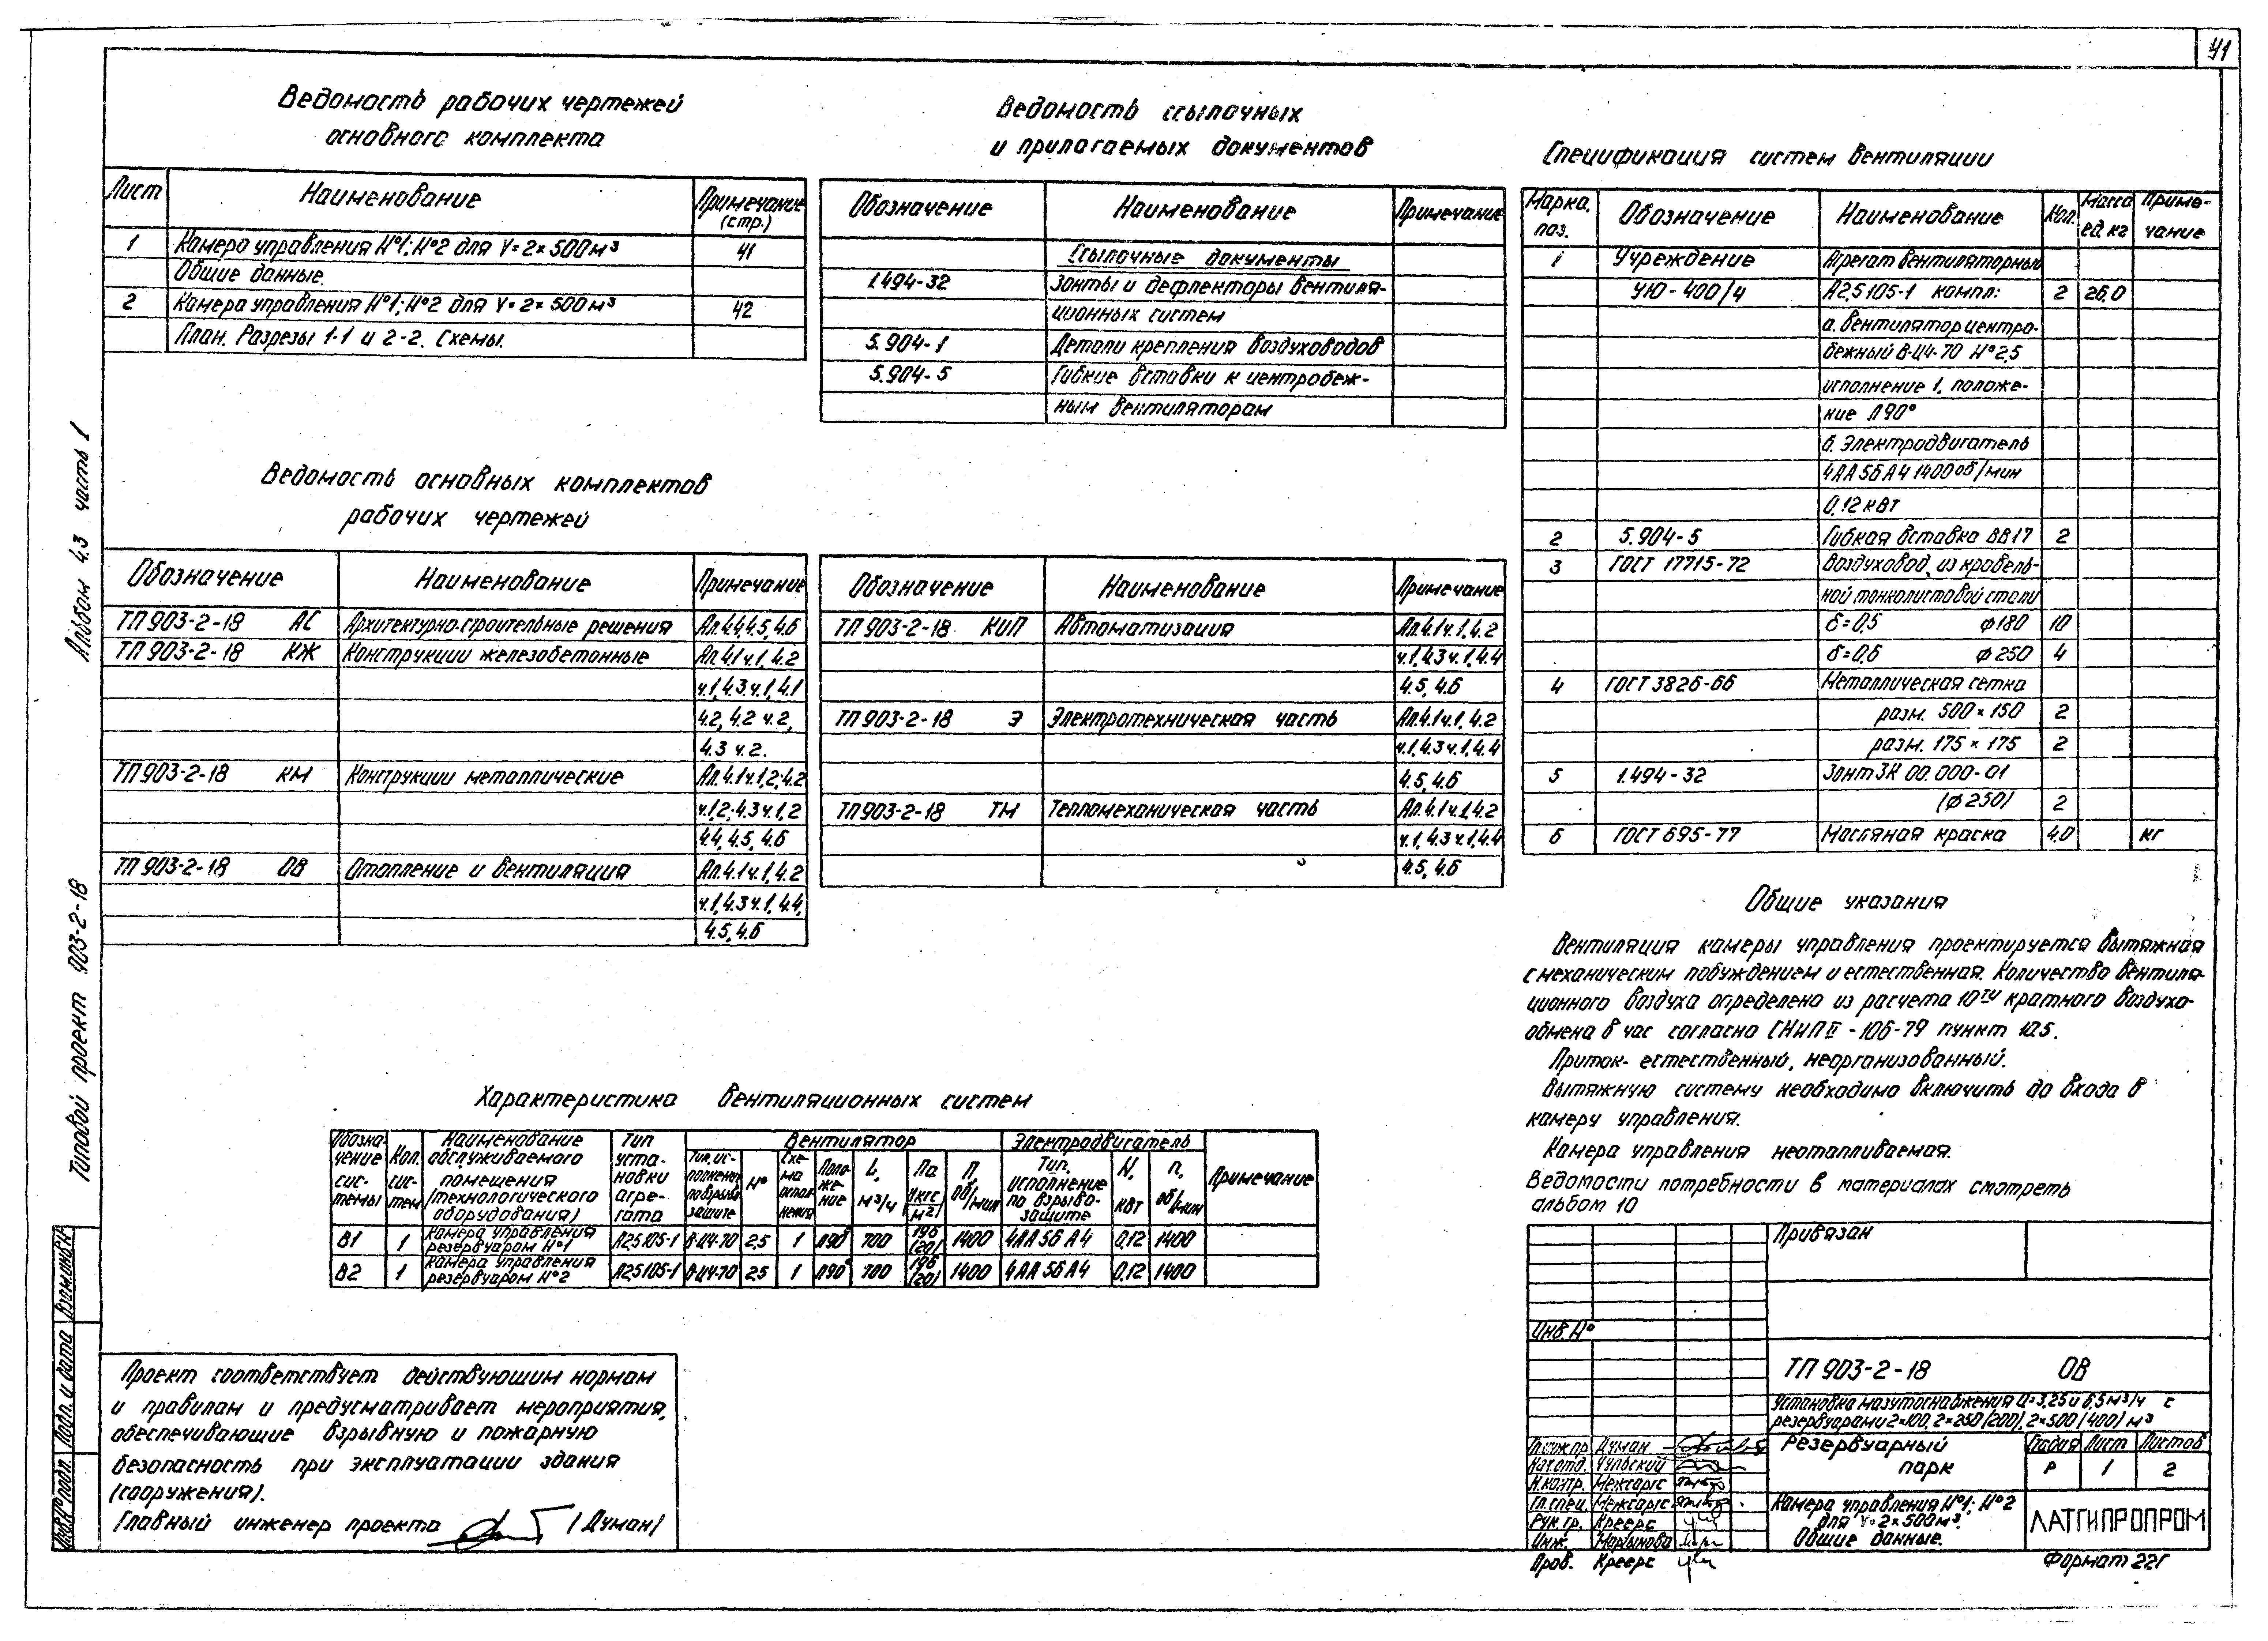 41
Ведомость рабочих чертежей
основного комплекта
Лист Наименование Примечание (стр.)
1 Камера управления №1; №2 для V=2×500м³ 41
Общие данные.
2 Камера управления №1; №2 для V=2×500м³ 42
План. Разрезы 1-1 и 2-2. Схемы.
Ведомость ссылочных
и прилагаемых документов
Обозначение Наименование Примечание
Ссылочные документы
1.494-32 Зонты и дефлекторы вентиля-
ционных систем
5.904-1 Детали крепления воздуховодов
5.904-5 Гибкие вставки к центробеж-
ным вентиляторам
Спецификация систем вентиляции
Марка, поз. Обозначение Наименование Кол. Масса ед. кг Приме-чание
1 Учреждение Агрегат вентиляторный
УЮ-400/4 А2,5105-1 компл: 2 26,0
а. вентилятор центро-
бежный В-Ц4-70 №2,5
исполнение 1, положе-
ние Л90°
б. Электродвигатель
4АА56А4 1400 об/мин
0,12 кВт
2 5.904-5 Гибкая вставка ВВ17 2
3 ГОСТ 17715-72 Воздуховод из кровель-
ной тонколистовой стали
δ=0,5 φ180 10
δ=0,6 φ250 4
4 ГОСТ 3826-66 Металлическая сетка
разм. 500×150 2
разм. 175×175 2
5 1.494-32 Зонт ЗК 00.000-01
(φ250) 2
6 ГОСТ 695-77 Масляная краска 4,0 кг
Ведомость основных комплектов
рабочих чертежей
Обозначение Наименование Примечание
ТП 903-2-18 АС Архитектурно-строительные решения Ал.4.4,4.5,4.6
ТП 903-2-18 КЖ Конструкции железобетонные Ал.4.1ч.1,4.2
ч.1,4.3.ч.1,4.1
4.2, 4.2 ч.2,
4.3 ч.2.
ТП 903-2-18 КМ Конструкции металлические Ал.4.1ч.1,2;4.2
ч.1,2;4.3ч.1,2
4.4, 4.5, 4.6
ТП 903-2-18 ОВ Отопление и вентиляция Ал.4.1ч.1,4.2
ч.1,4.3ч.1,4.4,
4.5, 4.6
Обозначение Наименование Примечание
ТП 903-2-18 КИП Автоматизация Ал.4.1ч.1,4.2
ч.1,4.3ч.1,4.4
4.5, 4.6
ТП 903-2-18 Э Электротехническая часть Ал.4.1ч.1,4.2
ч.1,4.3ч.1,4.4
4.5, 4.6
ТП 903-2-18 ТМ Тепломеханическая часть Ал.4.1ч.1,4.2
ч.1,4.3ч.1,4.4
4.5, 4.6
Общие указания
Вентиляция камеры управления проектируется вытяжная
с механическим побуждением и естественная. Количество вентиля-
ционного воздуха определено из расчета 10ти кратного воздухо-
обмена в час согласно СНиП II-106-79 пункт 10.5.
Приток- естественный, неорганизованный.
Вытяжную систему необходимо включить до входа в
камеру управления.
Камера управления неотапливаемая.
Ведомости потребности в материалах смотреть
альбом 10
Характеристика вентиляционных систем
Обозна-чение сис-темы Кол. сис-тем Наименование обслуживаемого помещения (технологического оборудования) Тип уста-новки агре-гата Вентилятор Электродвигатель Примечание
Тип, ис-полнение по взрыво-защите № Схе-ма испол-нения Поло-же-ние L, м³/ч Па (кгс/м²) П, об/мин Тип, исполнение по взрыво-защите N, кВт п, об/мин
В1 1 Камера управления резервуаром №1 А2,5105-1 В-Ц4-70 2,5 1 Л90° 700 196 (20) 1400 4АА56А4 0,12 1400
В2 1 Камера управления резервуаром №2 А2,5105-1 В-Ц4-70 2,5 1 Л90° 700 196 (20) 1400 4АА56А4 0,12 1400
Проект соответствует действующим нормам
и правилам и предусматривает мероприятия,
обеспечивающие взрывную и пожарную
безопасность при эксплуатации здания
(сооружения).
Главный инженер проекта (Думан)
Привязан
Инв.№
ТП 903-2-18 ОВ
Установка мазутоснабжения Q=3,25 и 6,5 м³/ч с
резервуарами 2×100, 2×250 (200), 2×500 (400) м³
Гл.инж.пр. Думан
Нач.отд. Чульский
Н.контр. Межсаргс
Гл.спец. Межсаргс
Рук.гр. Креерс
Инж. Мартынова
Пров. Креерс
Резервуарный
парк
Стадия Лист Листов
Р 1 2
Камера управления №1; №2
для V=2×500м³.
Общие данные.
ЛАТГИПРОПРОМ
Формат 22Г
Альбом 4.3 часть 1
Типовой проект 903-2-18
Инв.№подл. Подп. и дата Взам.инв.№